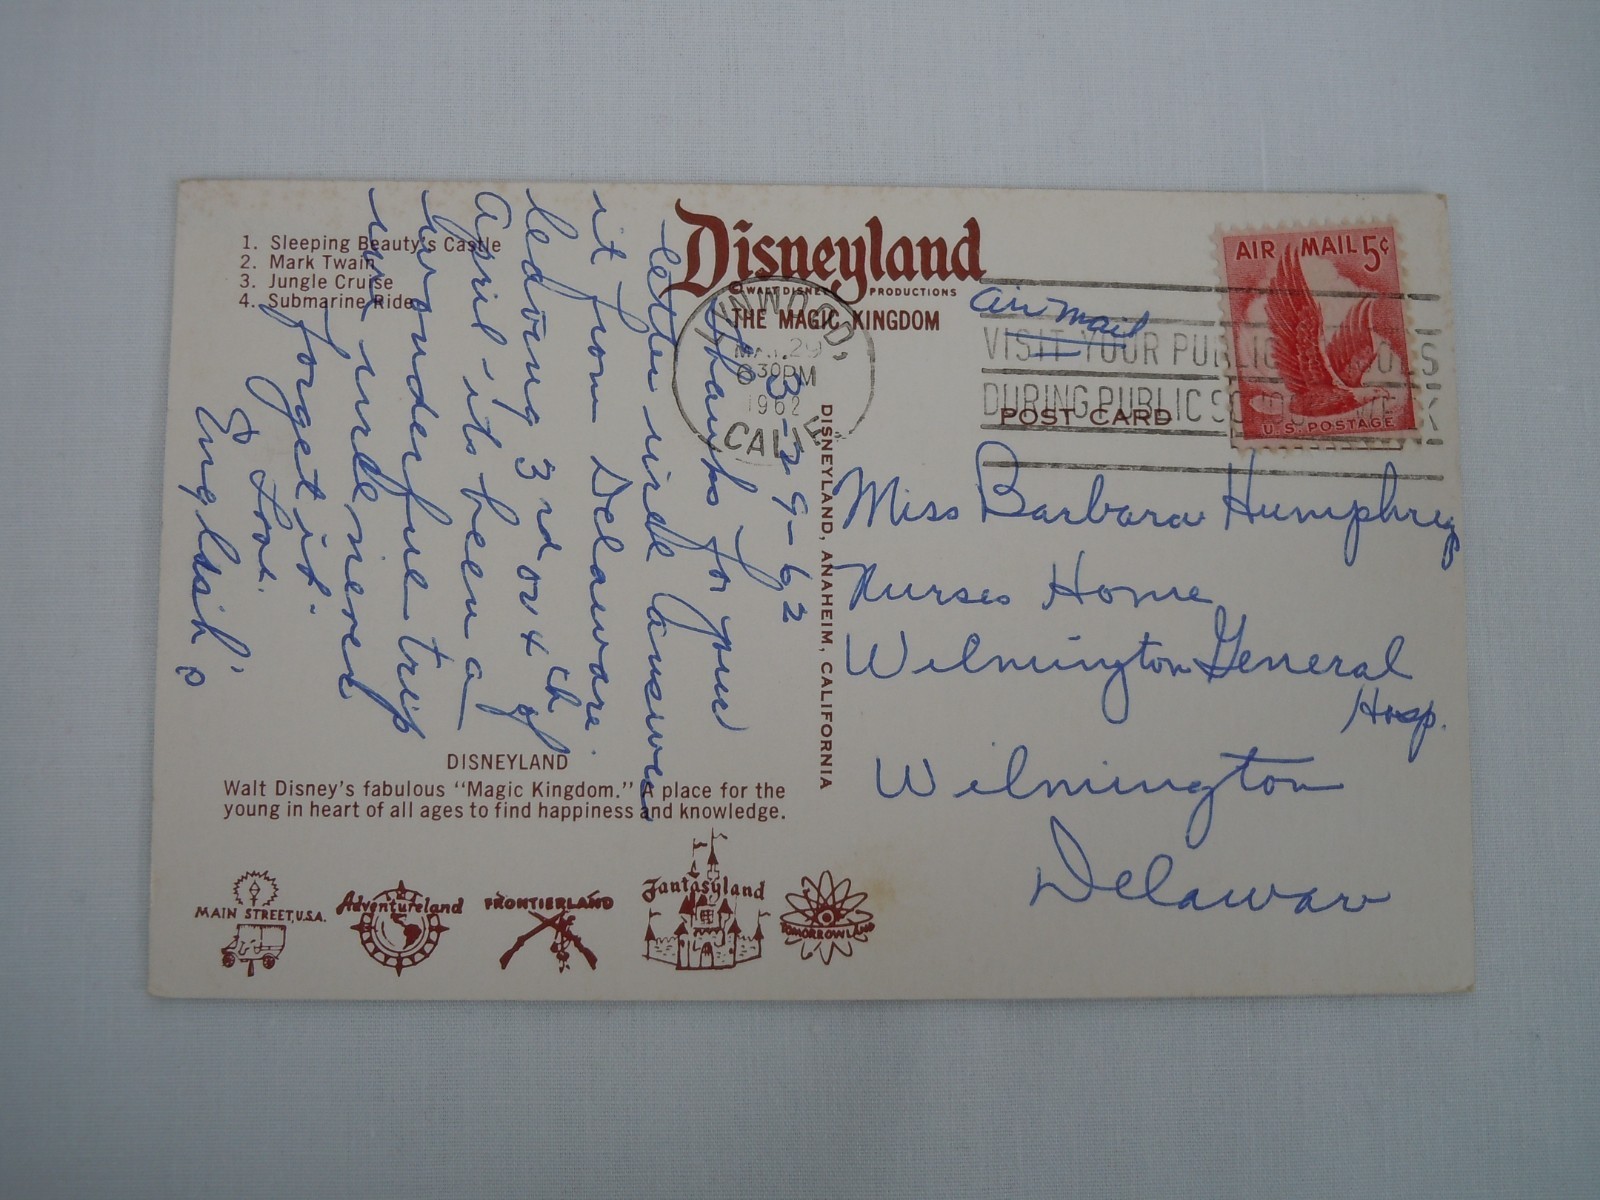 1. Sleeping Beauty's Castle
2. Mark Twain
3. Jungle Cruise
4. Submarine Ride
Disneyland
© WALT DISNEY PRODUCTIONS
THE MAGIC KINGDOM
3-29-62
Thanks for your
letter will answer
it from Delaware.
leaving 3rd or 4th of
April - its been a
wonderful trip
will never
forget it.
Love
English's
DISNEYLAND
Walt Disney's fabulous "Magic Kingdom." A place for the
young in heart of all ages to find happiness and knowledge.
MAIN STREET, U.S.A.
Adventureland
FRONTIERLAND
Fantasyland
TOMORROWLAND
DISNEYLAND, ANAHEIM, CALIFORNIA
LYNWOOD,
MAR 29
6 30 PM
1962
CALIF
air mail
VISIT YOUR PUBLIC SCHOOLS
DURING PUBLIC SCHOOLS WEEK
POST CARD
AIR MAIL 5¢
U.S. POSTAGE
Miss Barbara Humphreys
Nurses Home
Wilmington General
Hosp.
Wilmington
Delaware